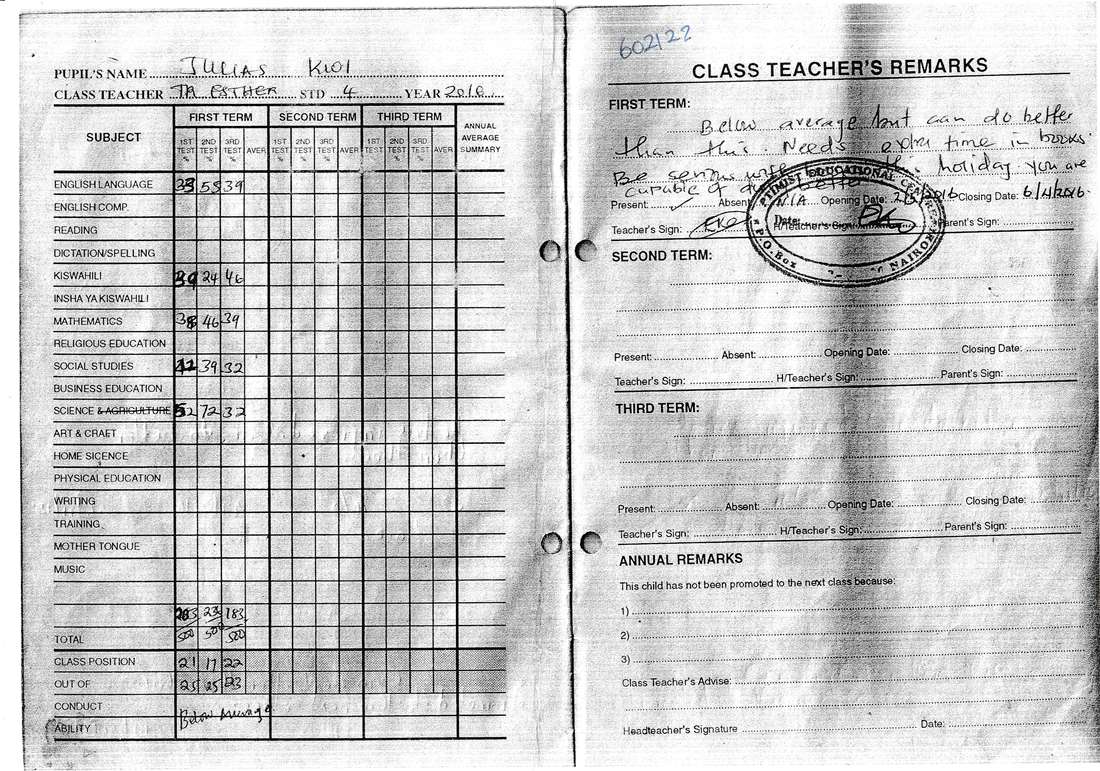 602122
PUPIL'S NAME JULIAS KIOI
CLASS TEACHER TR ESTHER STD 4 YEAR 2016
SUBJECT FIRST TERM SECOND TERM THIRD TERM ANNUAL AVERAGE SUMMARY
1ST TEST % 2ND TEST % 3RD TEST % AVER 1ST TEST % 2ND TEST % 3RD TEST % AVER 1ST TEST % 2ND TEST % 3RD TEST % AVER
ENGLISH LANGUAGE 33 55 39
ENGLISH COMP.
READING
DICTATION/SPELLING
KISWAHILI 39 24 46
INSHA YA KISWAHILI
MATHEMATICS 38 46 39
RELIGIOUS EDUCATION
SOCIAL STUDIES 39 32
BUSINESS EDUCATION
SCIENCE & AGRICULTURE 52 72 32
ART & CRAFT
HOME SICENCE
PHYSICAL EDUCATION
WRITING
TRAINING
MOTHER TONGUE
MUSIC
183
TOTAL 500 500 500
CLASS POSITION 21 17 22
OUT OF 25 25 23
CONDUCT
ABILITY Below Average
CLASS TEACHER'S REMARKS
FIRST TERM:
Below average but can do better
than this. Needs extra time in books
Be serious holiday you are
capable of better
Present: Absent N/A Opening Date: Closing Date: 6/4/2016
Teacher's Sign: H/Teacher's Sign: Parent's Sign:
EDUCATIONAL CENTRE
Date:
P.O. Box NAIROBI
SECOND TERM:
Present: Absent: Opening Date: Closing Date:
Teacher's Sign: H/Teacher's Sign: Parent's Sign:
THIRD TERM:
Present: Absent: Opening Date: Closing Date:
Teacher's Sign: H/Teacher's Sign: Parent's Sign:
ANNUAL REMARKS
This child has not been promoted to the next class because:
1)
2)
3)
Class Teacher's Advise:
Headteacher's Signature Date: